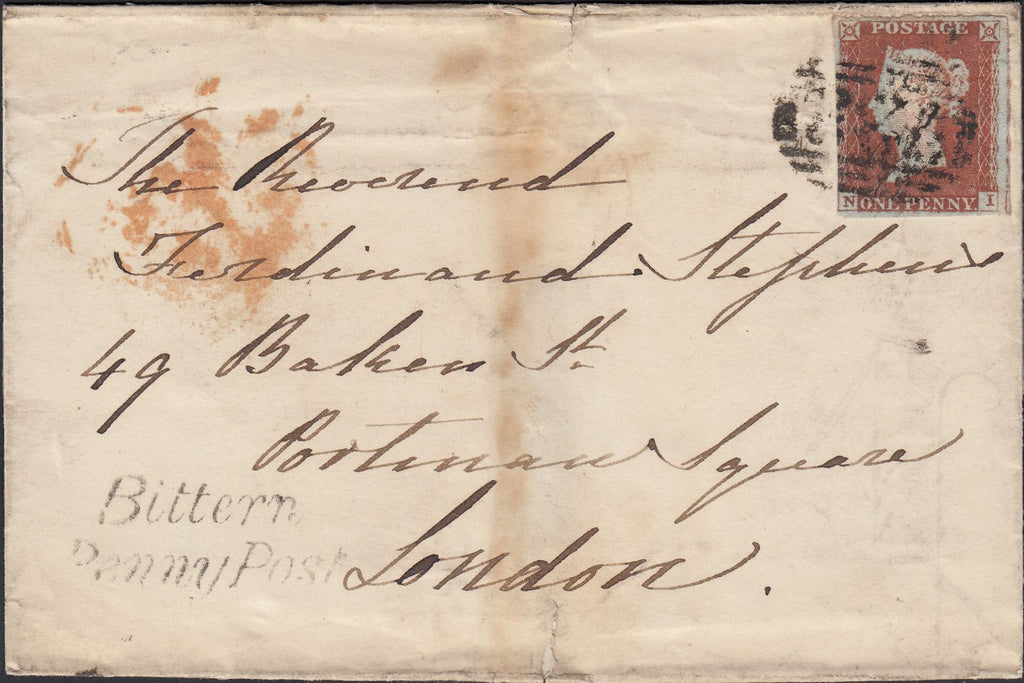 POSTAGE
N ONE PENNY I
The Reverend
Ferdinand Stephens
49 Baker St
Portman Square
London.
Bittern
Penny Post